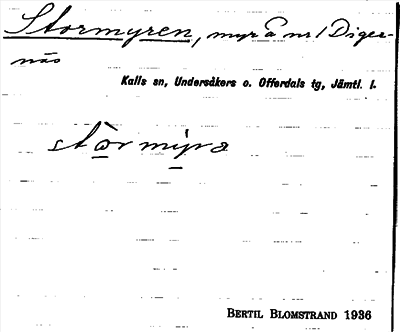 Stormyren, myr å nr 1 Diger-
näs
Kalls sn, Undersåkers o. Offerdals tg, Jämtl. l.
stòrmỳra
BERTIL BLOMSTRAND 1936